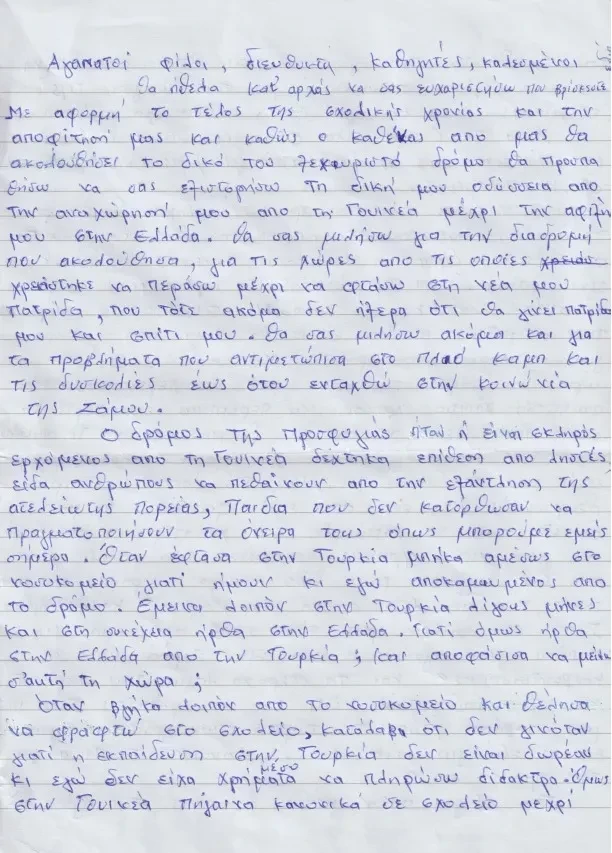 Αγαπητοί φίλοι, διευθυντά, καθηγητές, καλεσμένοι
θα ήθελα κατ' αρχάς να σας ευχαριστήσω που βρίσκεστε
Με αφορμή το τέλος της σχολικής χρονιάς και την
αποφίτησή μας και καθώς ο καθένας απο μας θα
ακολουθήσει το δικό του ξεχωριστό δρόμο θα προσπα
θήσω να σας εξιστορήσω τη δική μου οδύσσεια απο
την αναχώρησή μου απο τη Γουινέα μέχρι την αφιξή
μου στην Ελλάδα. Θα σας μιλήσω για την διαδρομή
που ακολούθησα, για τις χώρες απο τις οποίες χρειασ
χρειάστηκε να περάσω μέχρι να φτάσω στη νέα μου
πατρίδα, που τότε ακόμα δεν ήξερα ότι θα γίνει πατρίδα
μου και σπίτι μου. Θα σας μιλήσω ακόμα και για
τα προβλήματα που αντιμετώπισα στο καμπ και
τις δυσκολίες έως ότου ενταχθώ στην κοινωνία
της Σάμου.
Ο δρόμος της προσφυγιάς ήταν ή είναι σκληρός
ερχόμενος απο τη Γουινέα δέχτηκα επίθεση απο ληστές
είδα ανθρώπους να πεθαίνουν απο την εξάντληση της
ατελείωτης πορείας, παιδια που δεν κατόρθωσαν να
πραγματοποιήσουν τα όνειρα τους όπως μπορούμε εμείς
σήμερα. Όταν έφτασα στην Τουρκία μπήκα αμέσως στο
νοσοκομείο γιατί ήμουν κι εγώ αποκαμωμένος απο
το δρόμο. Έμεινα λοιπόν στην Τουρκία λίγους μήνες
και στη συνέχεια ήρθα στην Ελλάδα. Γιατί όμως ήρθα
στην Ελλάδα απο την Τουρκία; και αποφάσισα να μείνω
σ'αυτή τη χώρα;
Όταν βγήκα λοιπόν απο το νοσοκομείο και θέλησα
να γραφτώ στο σχολείο, κατάλαβα ότι δεν γινόταν
γιατί η εκπαίδευση στην Τουρκία δεν είναι δωρέαν
κι εγώ δεν είχα χρήματα μέσα να πληρώσω δίδακτρα. Όμως
στην Γουινέα πήγαινα κανονικά σε σχολείο μεχρί